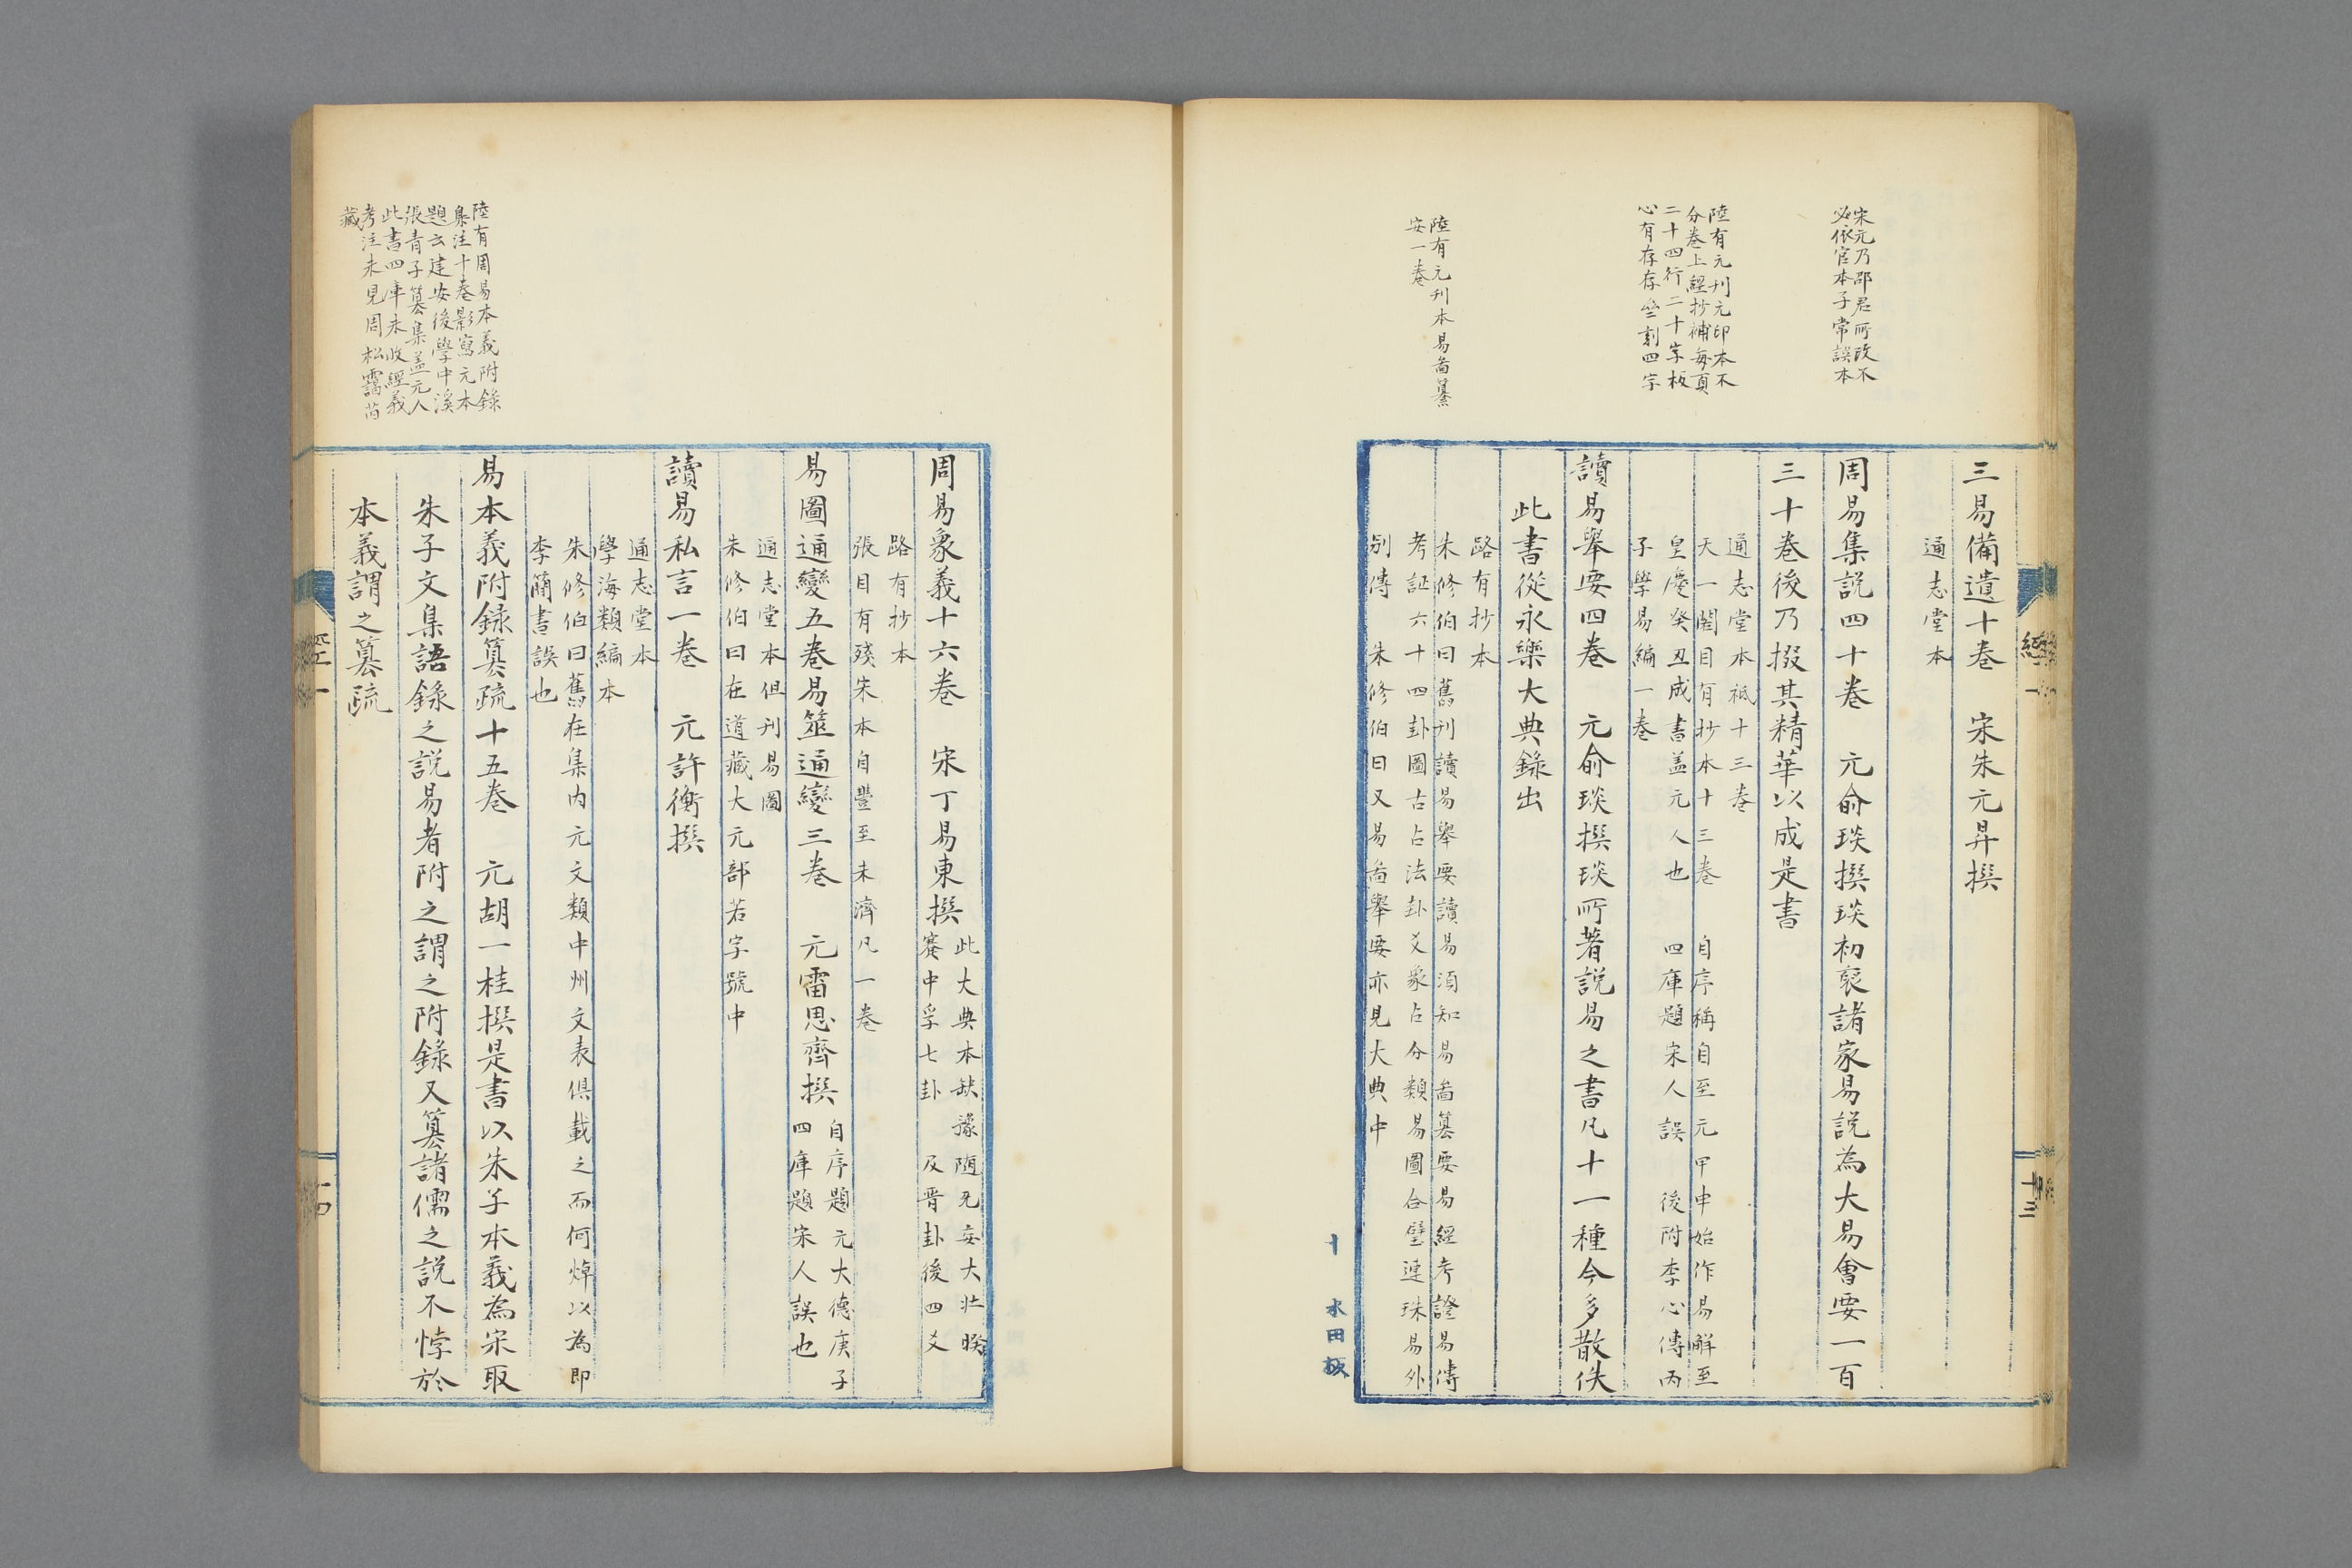 宋元乃邵君所改不
必依官本子常誤本
陸有元刊元印本不
分卷上經抄補每頁
二十四行二十字板
心有存存堂刻四字
陸有元刊本易啚纂
安一卷
三易備遺十卷　宋朱元昇撰
通志堂本
周易集説四十卷　元俞琰撰琰初裒諸家易説為大易會要一百
三十卷後乃掇其精華以成是書
通志堂本祗十三卷　自序稱自至元甲申始作易解至
天一閣目有抄本十三卷
皇慶癸丑成書盖元人也　四庫題宋人誤　後附李心傳丙
子學易編一卷
讀易舉要四卷　元俞琰撰琰所著説易之書凡十一種今多散佚
此書從永樂大典錄出
路有抄本
朱修伯曰舊刊讀易舉要讀易須知易啚纂要易經考證易傳
考証六十四卦圖古占法卦爻象占分類易圖合璧連珠易外
别傳　朱修伯曰又易啚舉要亦見大典中
經一
十三
十　水田板
陸有周易本義附錄
集注十卷影寫元本
題云建安後學中溪
張青子纂集盖元人
此書四庫未收經義
考注未見周松靄芮
藏
周易象義十六卷　宋丁易東撰
此大典本缺豫随无妄大壯睽
蹇中孚七卦　及晋卦後四爻
路有抄本
張目有殘宋本自豐至未濟凡一卷
易圖通變五卷易筮通變三卷　元雷思齊撰
自序題元大德庚子
四庫題宋人誤也
通志堂本但刊易圖
朱修伯曰在道藏大元部若字號中
讀易私言一卷　元許衡撰
通志堂本
學海類編本
朱修伯曰舊在集内元文類中州文表俱載之而何焯以為即
李簡書誤也
易本義附録纂疏十五卷　元胡一桂撰是書以朱子本義為宋取
朱子文集語錄之説易者附之謂之附錄又纂諸儒之説不悖於
本義謂之纂疏
經一
十四